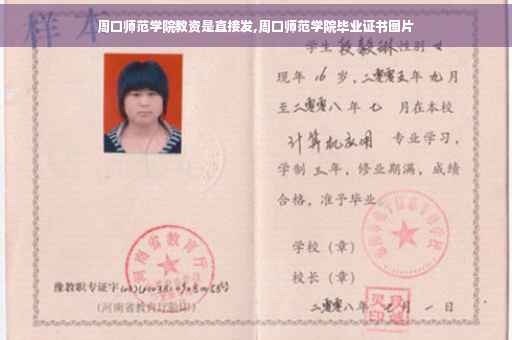 周口师范学院教资是直接发,周口师范学院毕业证书图片
样本
学生 段毅淋 性别 女
现年 16 岁，二零零五年 九 月
至二零零八年 七 月在本校
计算机应用 专业学习，
学制 三年，修业期满，成绩
合格，准予毕业
学校（章）
校长（章）
河南省教育厅
豫教职专证字
（河南省教育厅验印）
二零零八年 七 月 一 日